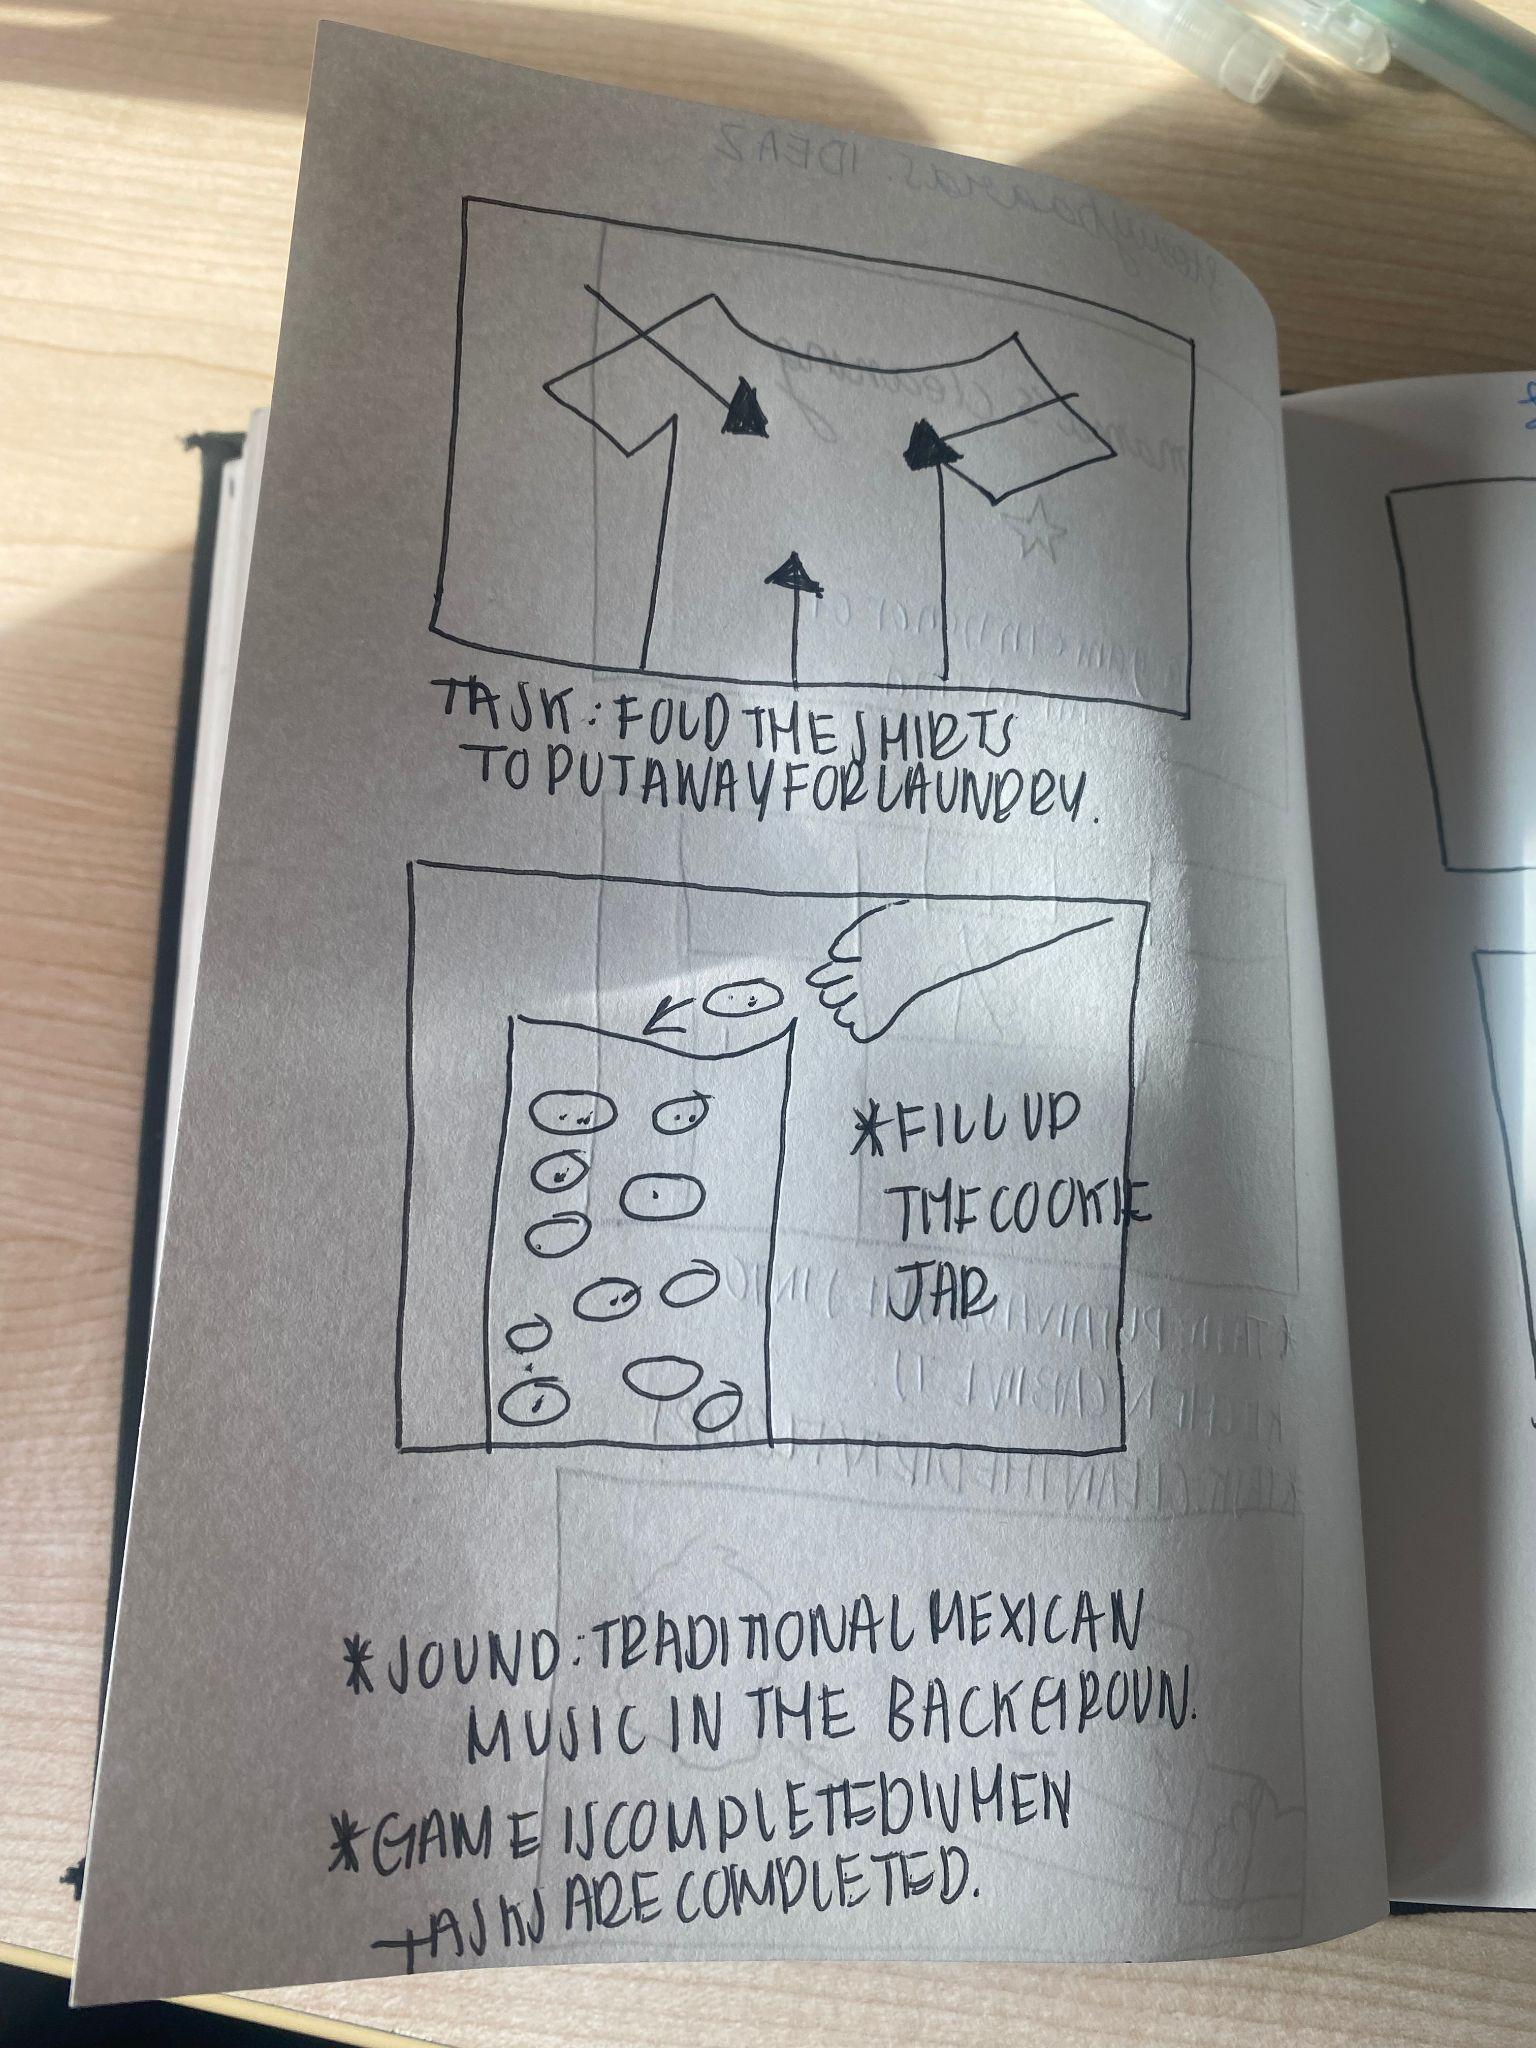 TASK: FOLD THE SHIRTS
TO PUT AWAY FOR LAUNDRY.
*FILL UP
THE COOKIE
JAR
*SOUND: TRADITIONAL MEXICAN
MUSIC IN THE BACKGROUN.
*GAME IS COMPLETED WHEN
TASKS ARE COMPLETED.